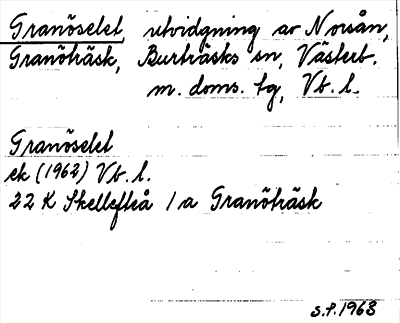 Granöselet, utvidgning av Norsån,
Granöträsk, Burträsks sn, Västerb.
m. doms. tg, Vb. l.
Granöselet
ek (1962) Vb. l.
22 K Skellefteå 1 a Granöträsk
s.f. 1968